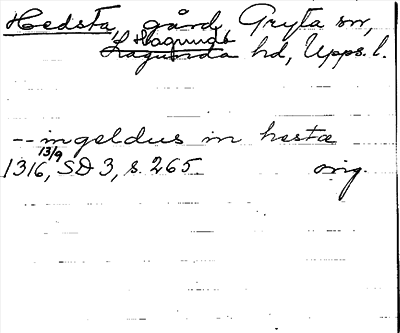 Hedsta, gård, Gryta sn,
Hagunda
Lagunda hd, Upps. l.
-- ingeldus in hestæ
13/9
1316, SD 3, s. 265. orig.